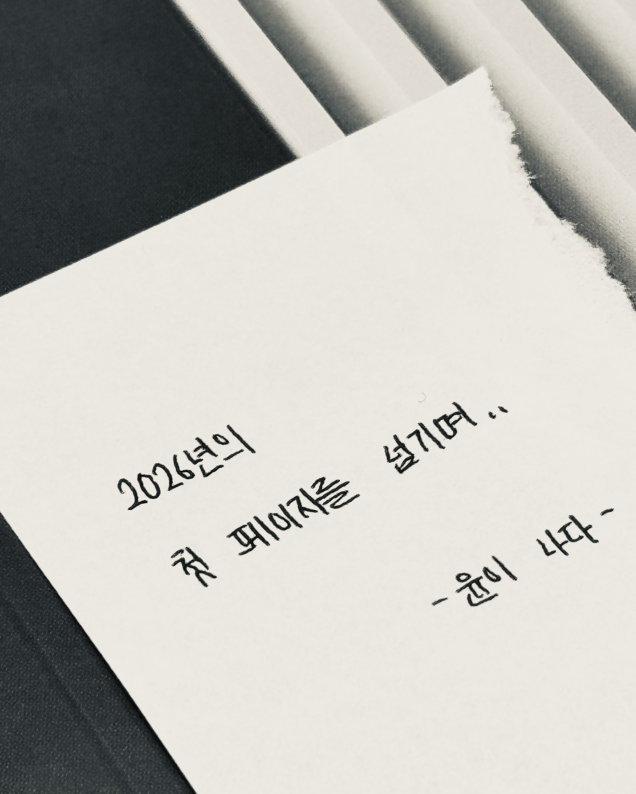 2026년의
첫 페이지를 넘기며..
-윤이 나다-